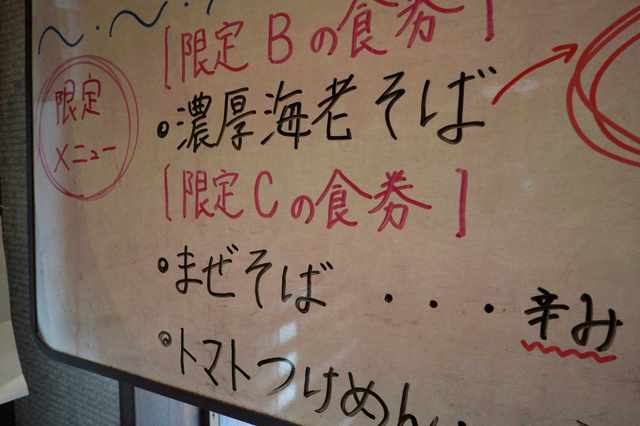 限定
メニュー
[限定Bの食券]
・濃厚海老そば
[限定Cの食券]
・まぜそば ・・・辛み
・トマトつけめん